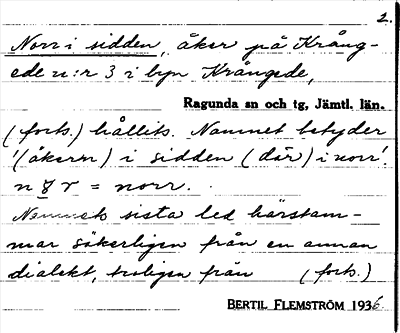 2.
Norr i sidden, åker på Krång-
ede n:r 3 i byn Krångede,
Ragunda sn och tg, Jämtl. län.
(forts.) hållits. Namnet betyder
'(åkern) i sidden (där) i norr'.
= norr.
Namnets sista led härstam-
mar säkerligen från en annan
dialekt, troligen från (forts.)
BERTIL FLEMSTRÖM 1936.